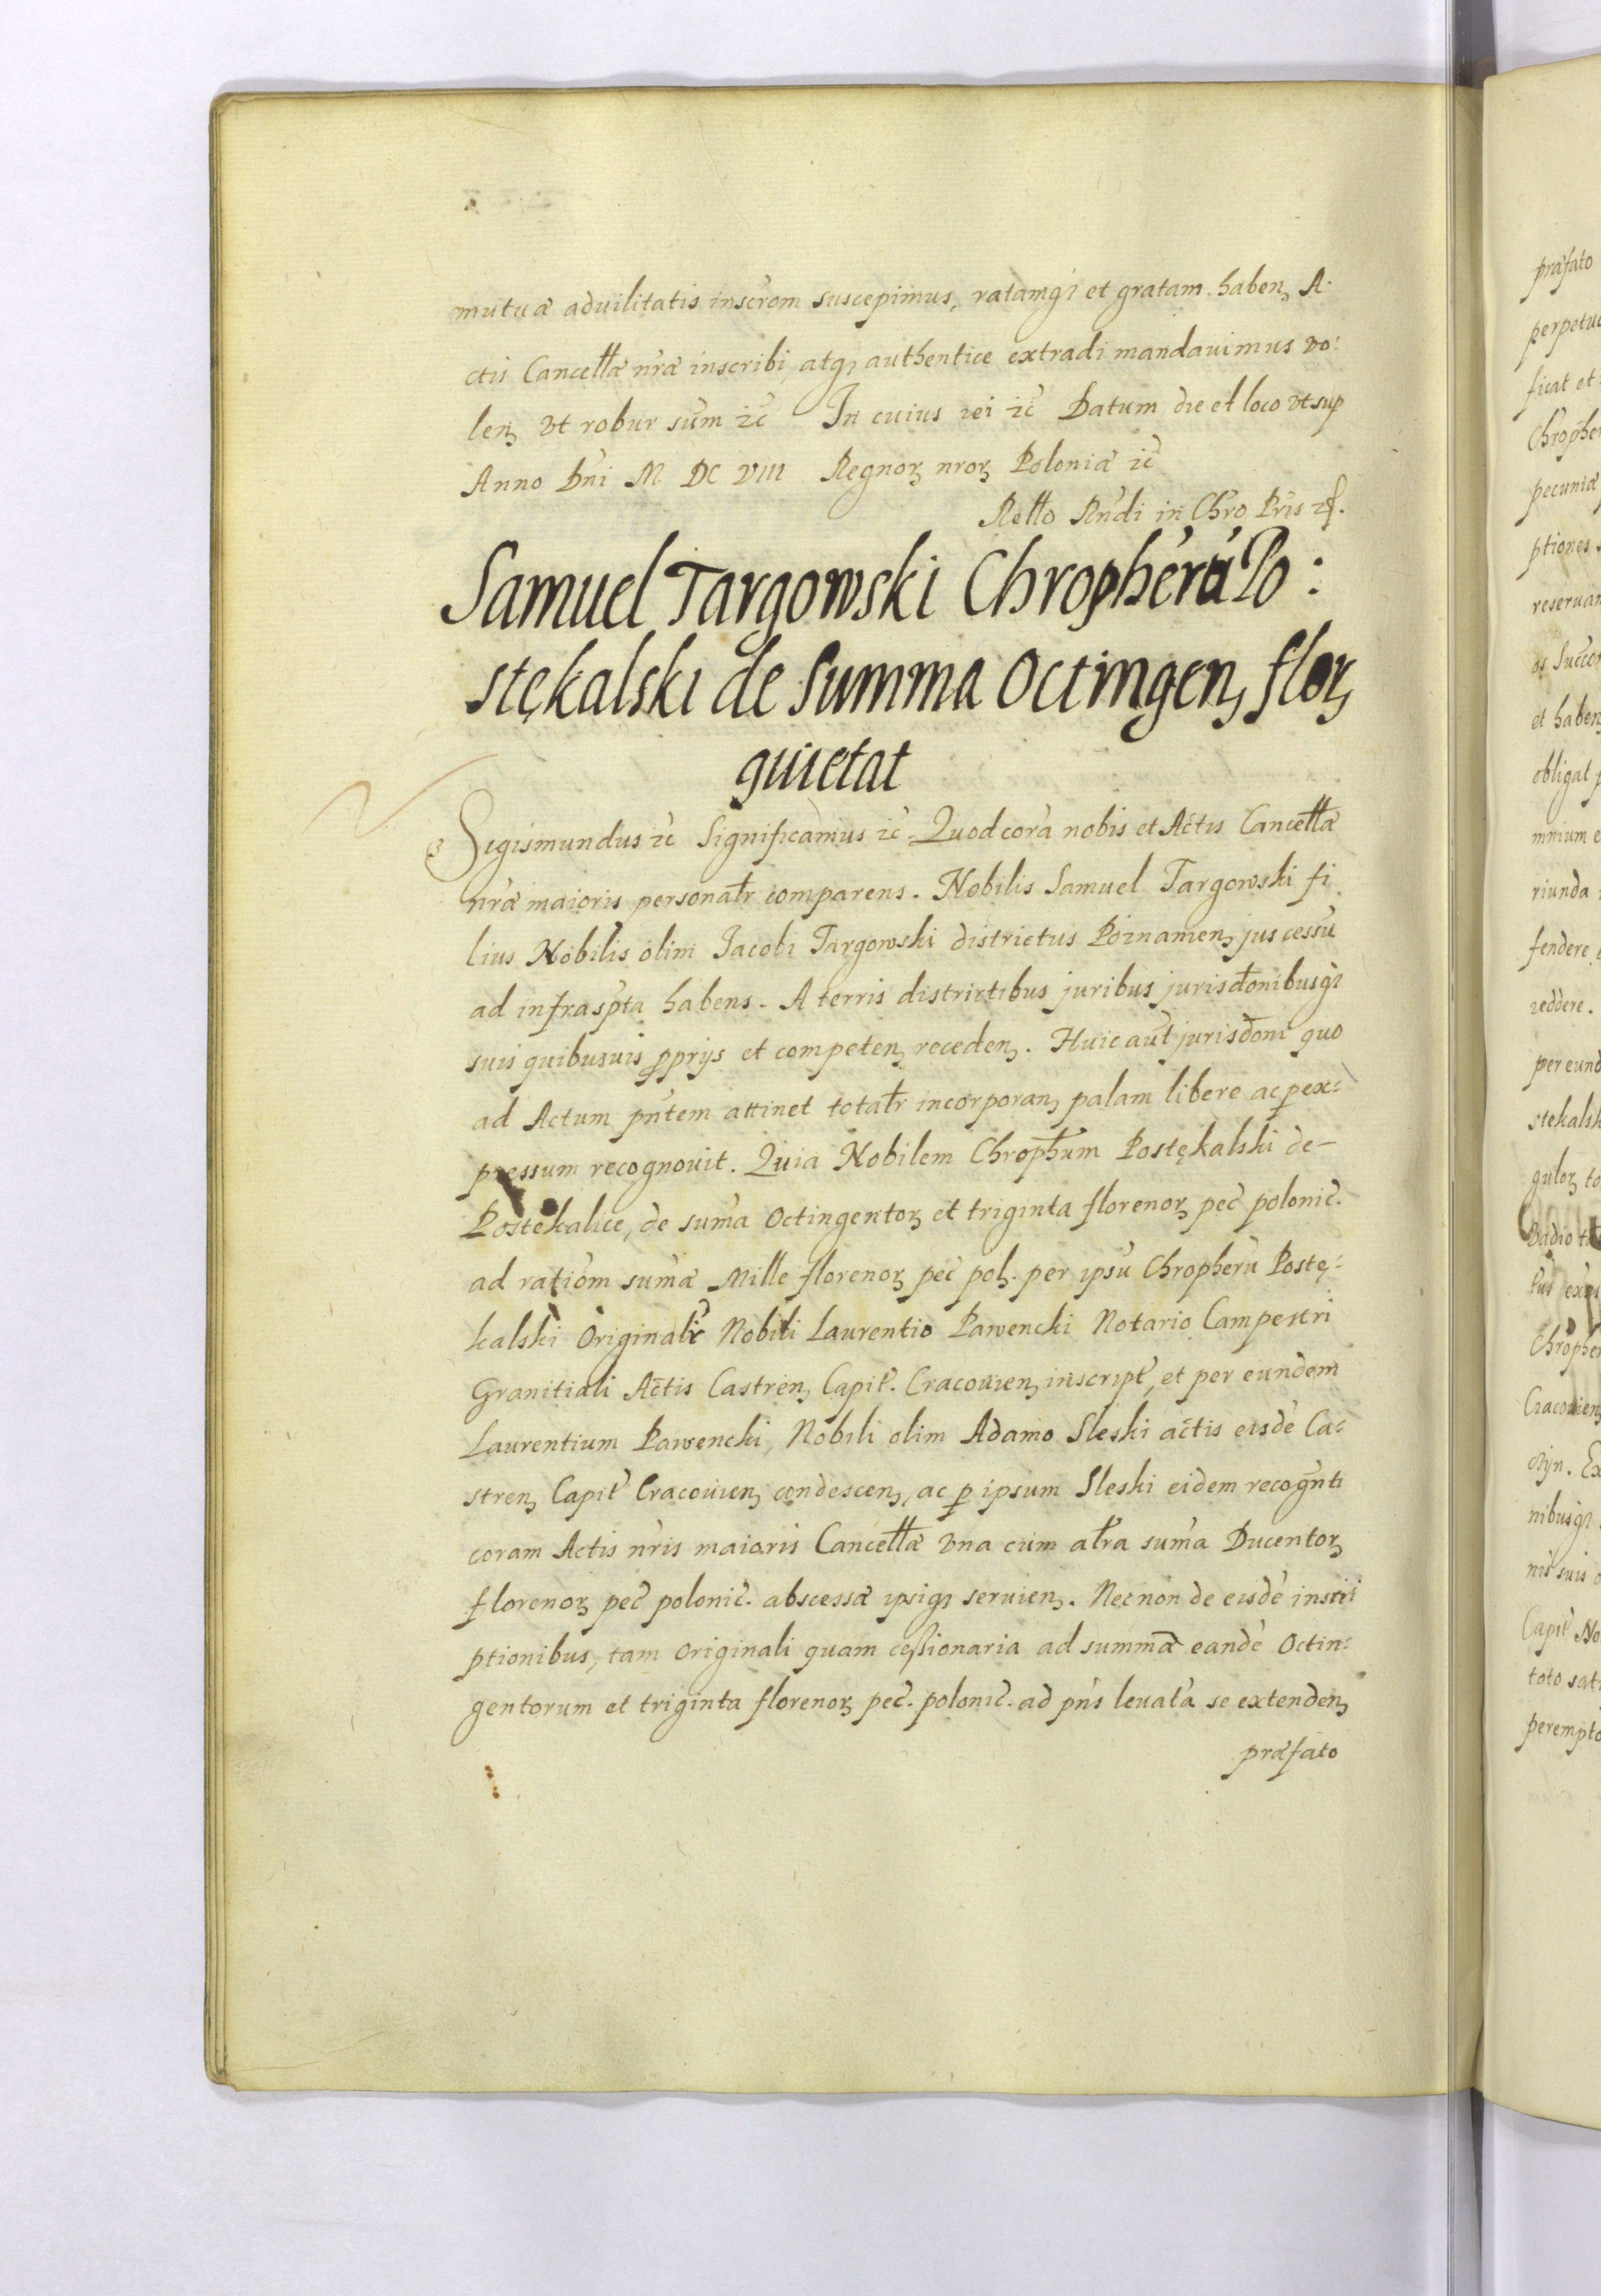 mutuæ aduilitatis inscrom suscepimus, ratamq3 et gratam haben3 A-
ctis Cancellæ nræ inscribi, atq3 authentice extradi mandauimus vo:
len3 vt robur sum zc̃ In cuius rei zc̃ Datum die et loco vt sup
Anno Dni M DC VIII Regnorꝫ nrorꝫ Poloniæ zc̃
Rello Rndi in Chro Pris
Samuel Targowski Chropherũ Po:
stękalski de Summa Octingenꝫ florꝫ
quietat
Sigismundus zc̃ Significamus zc̃ Quod corã nobis et Actis Cancellæ
nræ maioris personalr comparens. Nobilis Samuel Targowski fi
lius Nobilis olim Jacobi Targowski districtus Poznanienꝫ jus cessũ
ad infraspta habens. A terris districtibus juribus jurisdonibusq3
suis quibusuis ꝓprijs et competenꝫ recedenꝫ. Huic aut jurisdoni quo
ad Actum pntem attinet totalr incorporanꝫ palam libere ac ꝑ ex-
pressum recognouit. Quia Nobilem Chrophum Postękalski de
Postekalice, de sum̃a Octingentorꝫ et triginta florenorꝫ pec̃ polonic̃.
ad rationm sum̃æ Mille florenorꝫ pec̃ polꝫ. per ipsũ Chropherũ Postę-
kalski Originalr Nobili Laurentio Pawencki Notario Campestri
Granitiali Actis Castrenꝫ Capit. Cracouienꝫ inscript, et per eundem
Laurentium Pawencki, Nobili olim Adamo Sleski actis eisdẽ Ca-
strenꝫ Capit Cracouienꝫ condescenꝫ, ac ꝑ ipsum Sleski eidem recognti
coram Actis nris maioris Cancellæ vna cum altra sum̃a Ducentorꝫ
florenorꝫ pec̃ polonic̃. abscessæ ipsiq3 seruienꝫ. Necnon de eisdẽ inscri
ptionibus, tam originali quam cessionaria ad summã eandẽ Octin-
gentorum et triginta florenorꝫ pec̃. polonic̃. ad pns leuatã se extendenꝫ
præfato
præfato
ficat et
pecuniæ
et haben
obligat
riunda
fendere
reddere.
per eund
toto sat
perempto